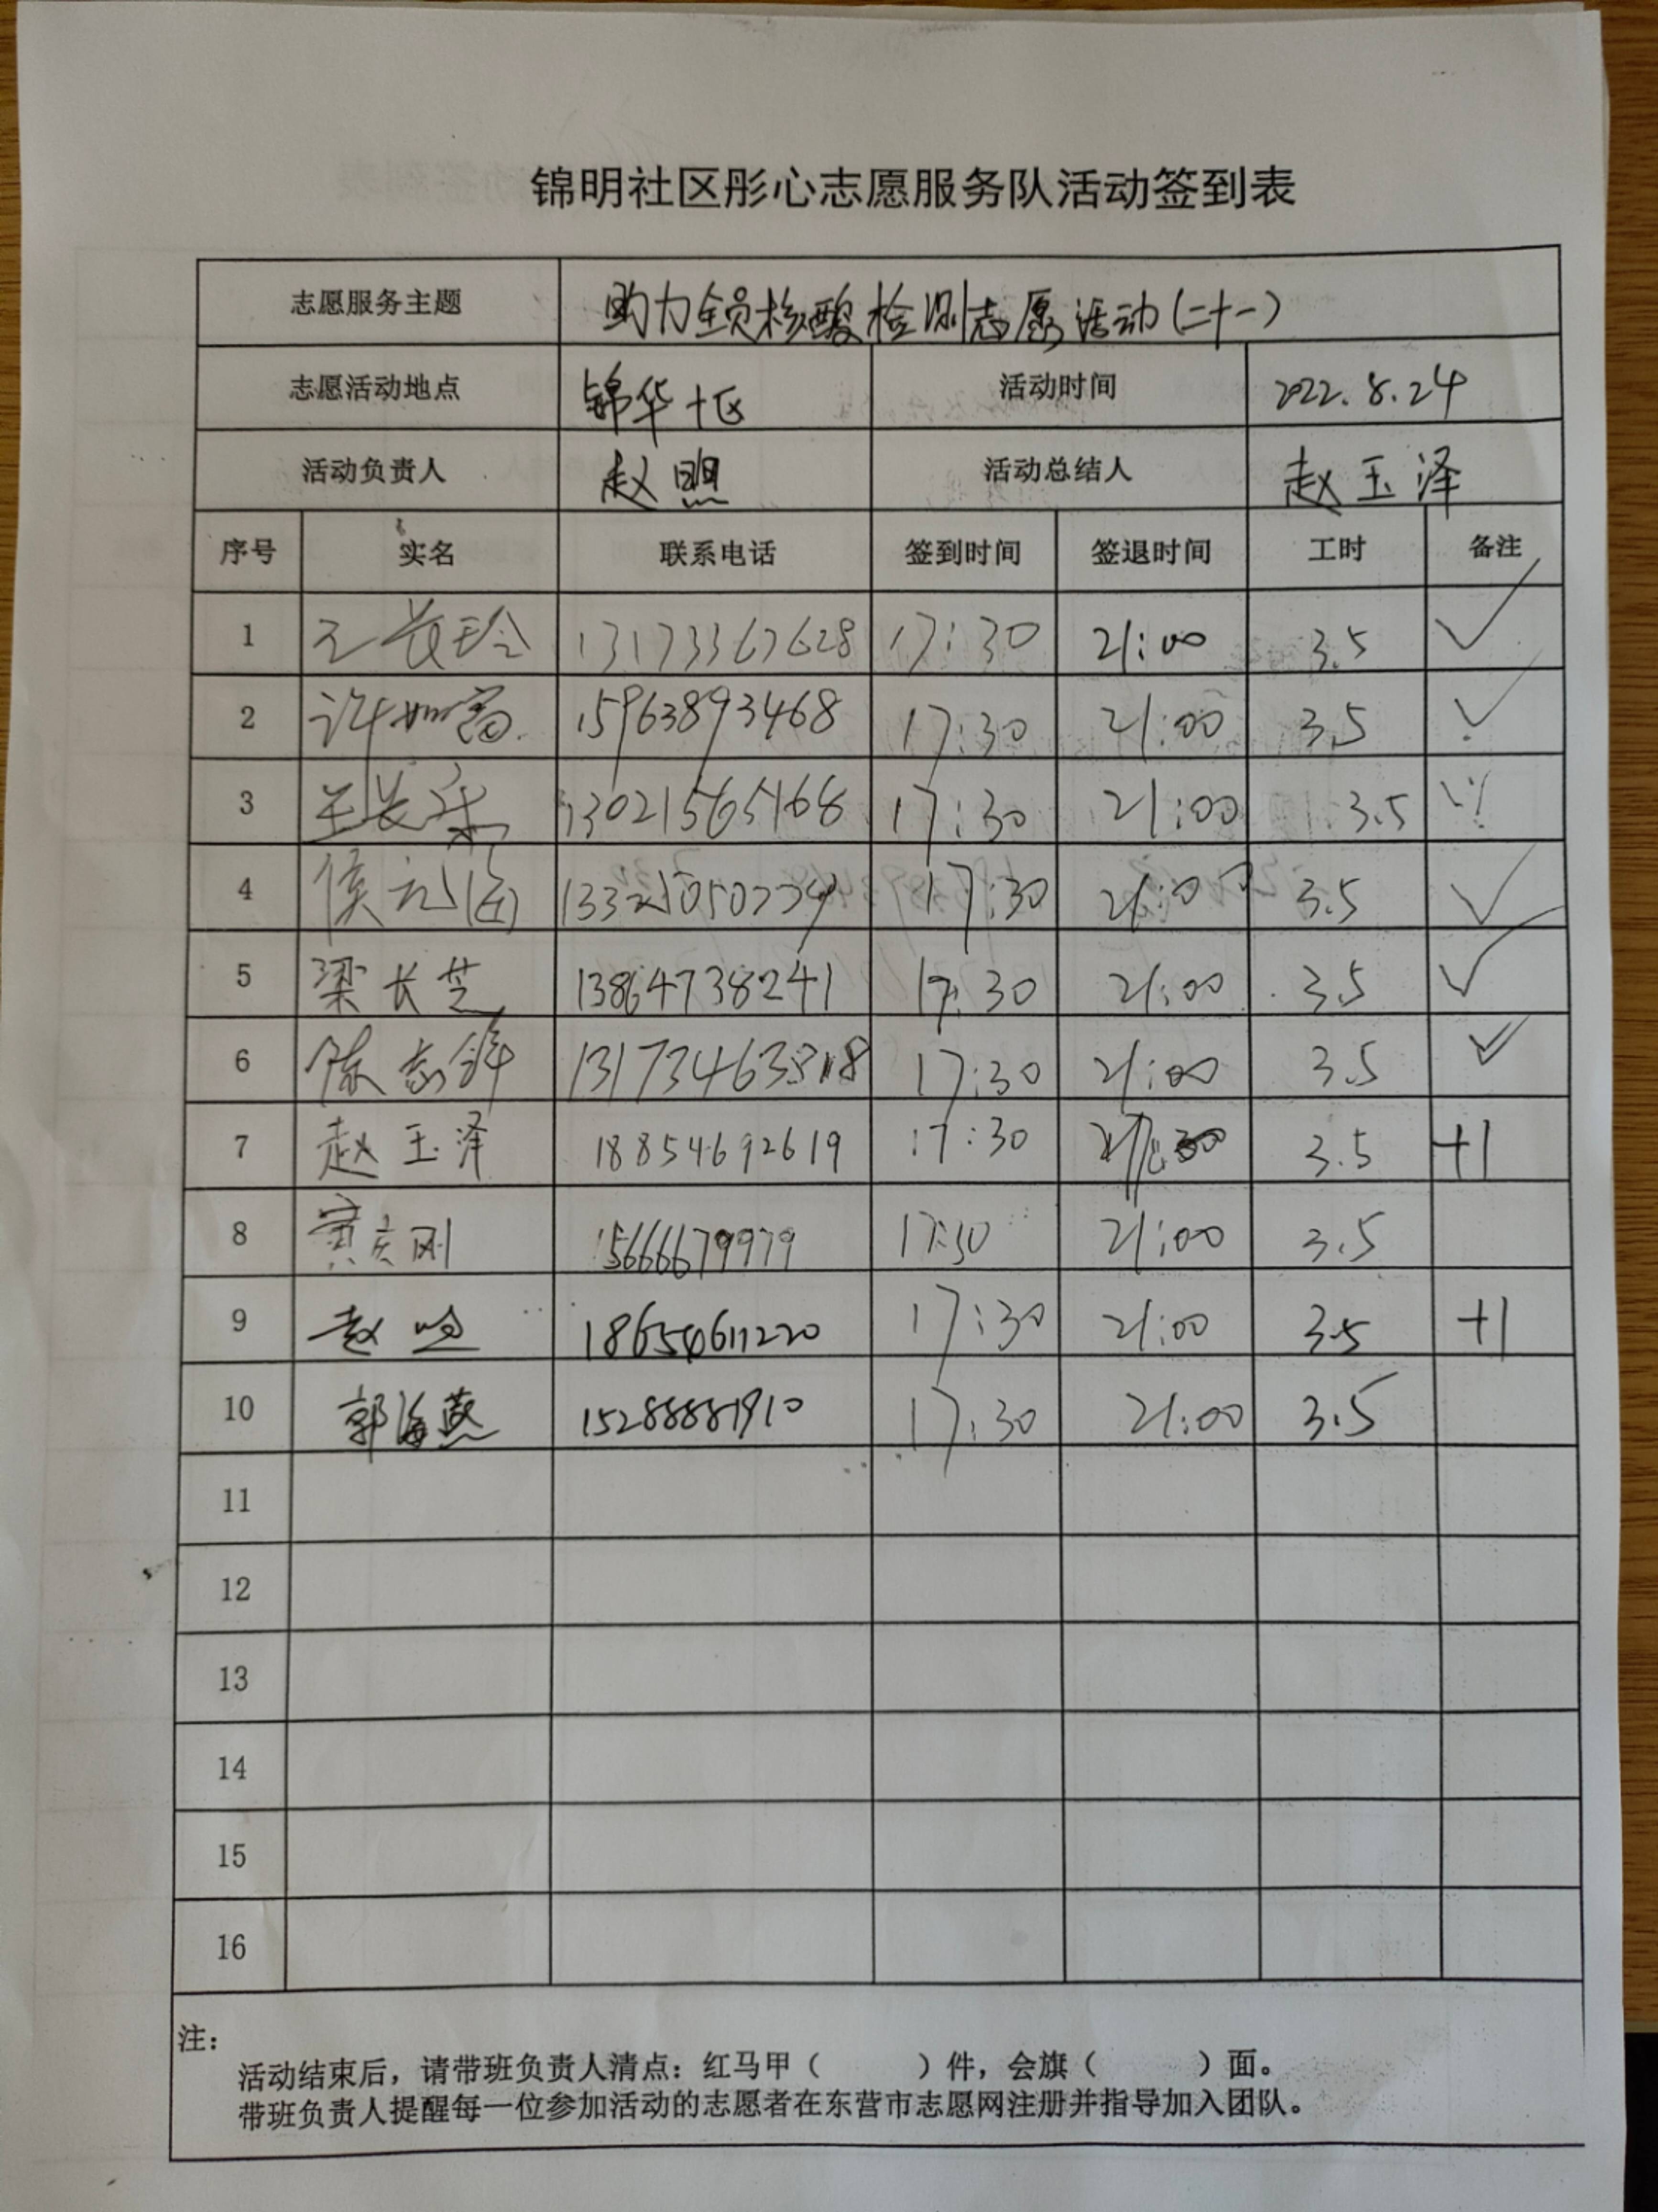 锦明社区彤心志愿服务队活动签到表
志愿服务主题 助力全员核酸检测志愿活动(二十一)
志愿活动地点 锦华十区 活动时间 2022.8.24
活动负责人 赵盟 活动总结人 赵玉泽
序号 实名 联系电话 签到时间 签退时间 工时 备注
1 王长玲 13173367628 17:30 21:00 3.5 ✓
2 许如富 15963893468 17:30 21:00 3.5 ✓
3 13021565168 17:30 21:00 3.5
4 17:30 21:00 3.5 ✓
5 梁长芝 13864738241 17:30 21:00 3.5 ✓
6 17:30 21:00 3.5 ✓
7 赵玉泽 18854692619 17:30 3.5 +1
8 15666679979 17:30 21:00 3.5
9 18654611220 17:30 21:00 3.5 +1
10 郭海燕 15288881910 17:30 21:00 3.5
11
12
13
14
15
16
注:
活动结束后，请带班负责人清点：红马甲（ ）件，会旗（ ）面。
带班负责人提醒每一位参加活动的志愿者在东营市志愿网注册并指导加入团队。